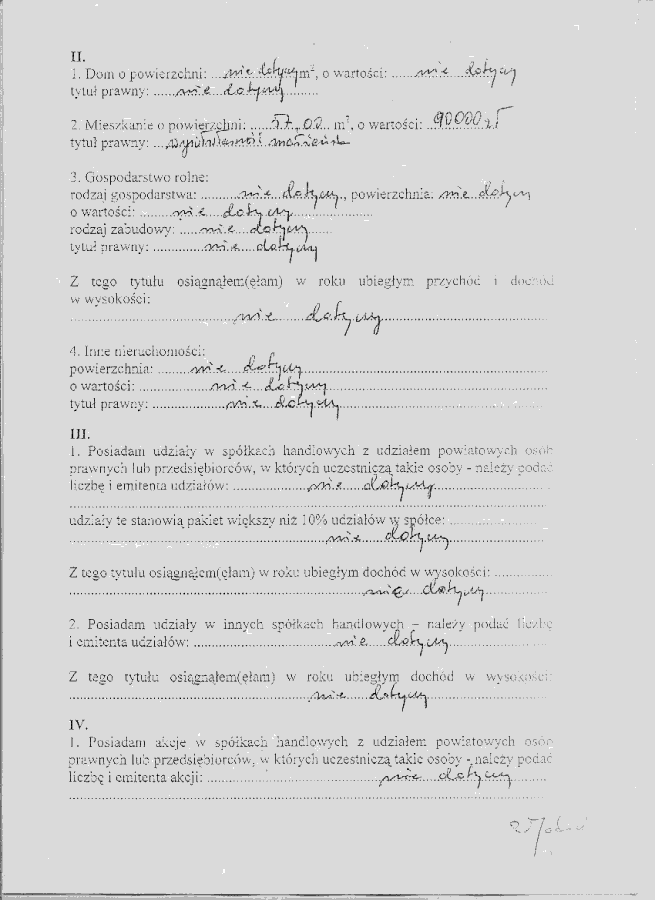 II.
1. Dom o powierzchni: ...nie dotyczy m², o wartości: ......nie dotyczy
tytuł prawny: ......nie dotyczy.........
2. Mieszkanie o powierzchni: ......57,00 m², o wartości: 90000 zł
tytuł prawny: ... współwłasność małżeńska
3. Gospodarstwo rolne:
rodzaj gospodarstwa: ..........nie dotyczy., powierzchnia: nie dotyczy
o wartości: .......nie dotyczy.................
rodzaj zabudowy: .....nie dotyczy......
tytuł prawny: .............nie dotyczy
Z tego tytułu osiągnąłem(ęłam) w roku ubiegłym przychód i dochód
w wysokości:
........nie dotyczy........
4. Inne nieruchomości:
powierzchnia: ........nie dotyczy........
o wartości: ........nie dotyczy........
tytuł prawny: ........nie dotyczy........
III.
1. Posiadam udziały w spółkach handlowych z udziałem powiatowych osób
prawnych lub przedsiębiorców, w których uczestniczą takie osoby - należy podać
liczbę i emitenta udziałów: ........nie dotyczy........
udziały te stanowią pakiet większy niż 10% udziałów w spółce: ........
........nie dotyczy........
Z tego tytułu osiągnąłem(ęłam) w roku ubiegłym dochód w wysokości: ........
........nie dotyczy........
2. Posiadam udziały w innych spółkach handlowych – należy podać liczbę
i emitenta udziałów: ........nie dotyczy........
Z tego tytułu osiągnąłem(ęłam) w roku ubiegłym dochód w wysokości:
........nie dotyczy........
IV.
1. Posiadam akcje w spółkach handlowych z udziałem powiatowych osób
prawnych lub przedsiębiorców, w których uczestniczą takie osoby - należy podać
liczbę i emitenta akcji: ........nie dotyczy........